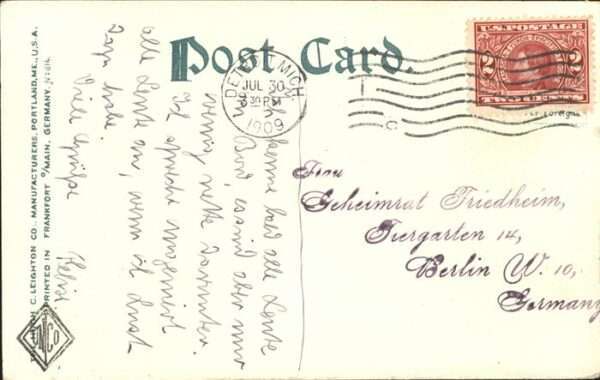 Post Card.
THE HUGH C. LEIGHTON CO., MANUFACTURERS, PORTLAND, ME., U.S.A.
PRINTED IN FRANKFORT O/MAIN, GERMANY.
U.S. POSTAGE
2 2
TWO CENTS
DETROIT, MICH.
JUL 30
30 PM
1909
kenne bald alle Leute
Bord, es sind aber nur
wenig nette darunter.
Ich spreche ungeniert
alle Leute an, wenn ich Lust
dazu habe.
Viele Grüße
Frau
Geheimrat Friedheim,
Tiergarten 14,
Berlin W. 10,
Germany